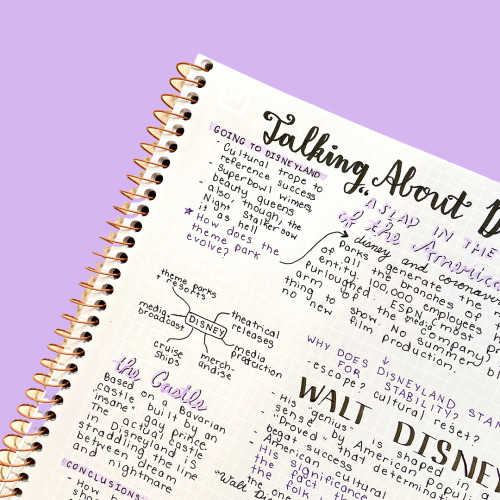 Talking About D
GOING TO DISNEYLAND
- Cultural trope to
reference success
- Superbowl winners,
beauty queens
- also, though, the
Night Stalker saw
it as hell
★ How does the
theme park
evolve?
"A SLAP IN THE
of the America
disney and coronavir
Parks generate the m
of all the branches of
entity. 100,000 employees
furloughed. ESPN, the
arm of the media
thing to show. Most
no new film production.
No summer bl
company!
theme parks
resorts
media
broadcast
DISNEY
theatrical
releases
cruise
ships
merch-
andise
media
production
WHY DOES DISNEYLAND STAN
FOR STABILITY?
- escape? cultural reset?
the Castle
Based on a Bavarian
castle built by an
"insane" gay prince.
The actual castle
in Disneyland is
straddling the line
between dream
and nightmare
WALT DISNEY
- His "genius" is shaped in
sense of American politi
- Proved that determin
begat success
- American cultural
His significance
the fact
the folk
"Walt Di
CONCLUSIONS
- How